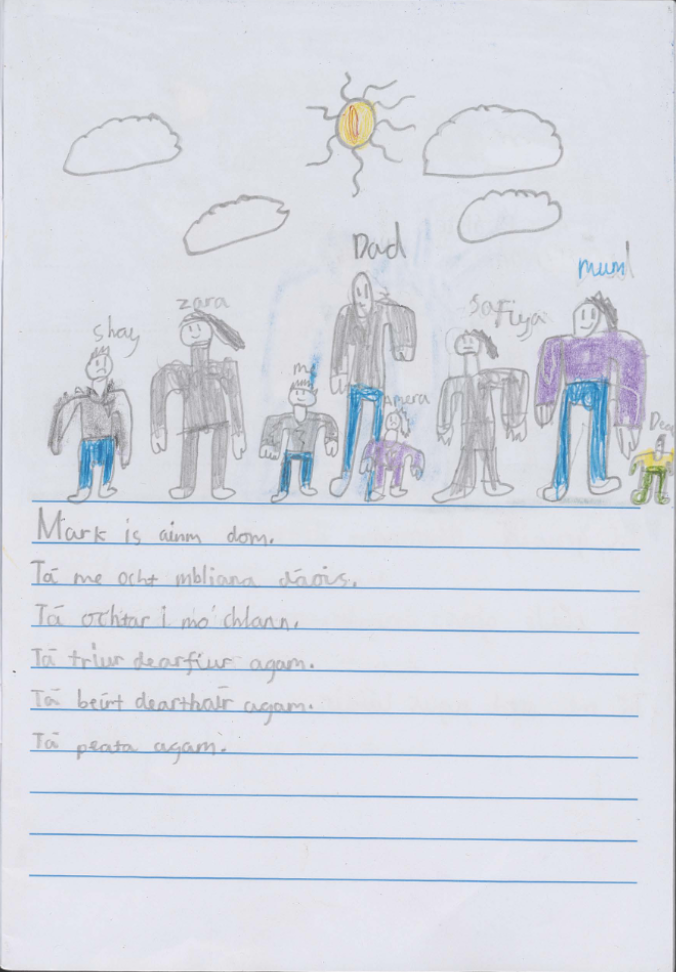 Dad
mum
zara
Safiya
shay
me
Amera
Mark is ainm dom.
Tá me ocht mbliana d'aois.
Tá ochtar i mo chlann.
Tá triur dearfiur agam.
Tá beirt dearthair agam.
Tá peata agam.